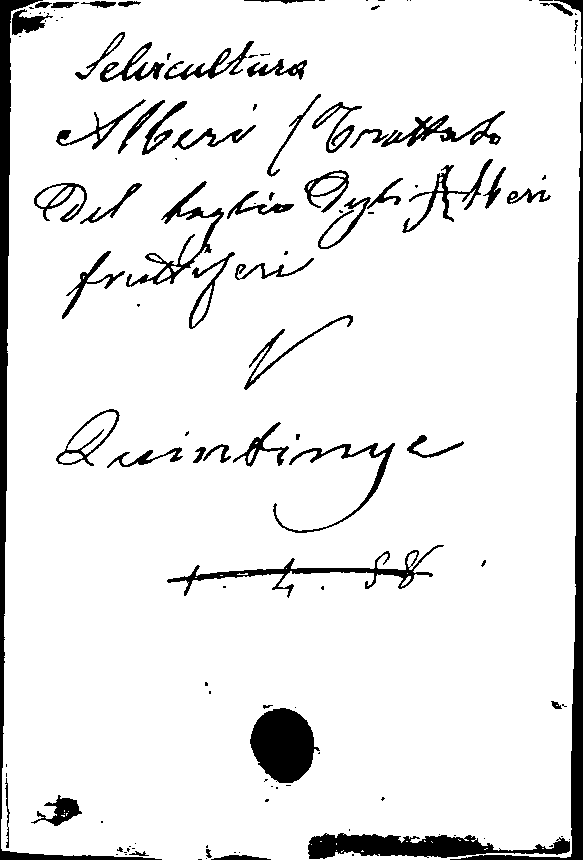 Selvicultura
Alberi (Trattato
Del taglio Degli Alberi
fruttiferi
V
Quintinye
1. 4. 58